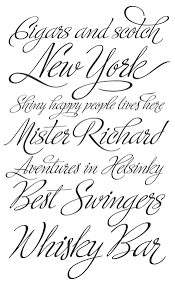 Cigars and scotch
New York
Shiny happy people lives here
Mister Richard
Adventures in Helsinky
Best Swingers
Whisky Bar